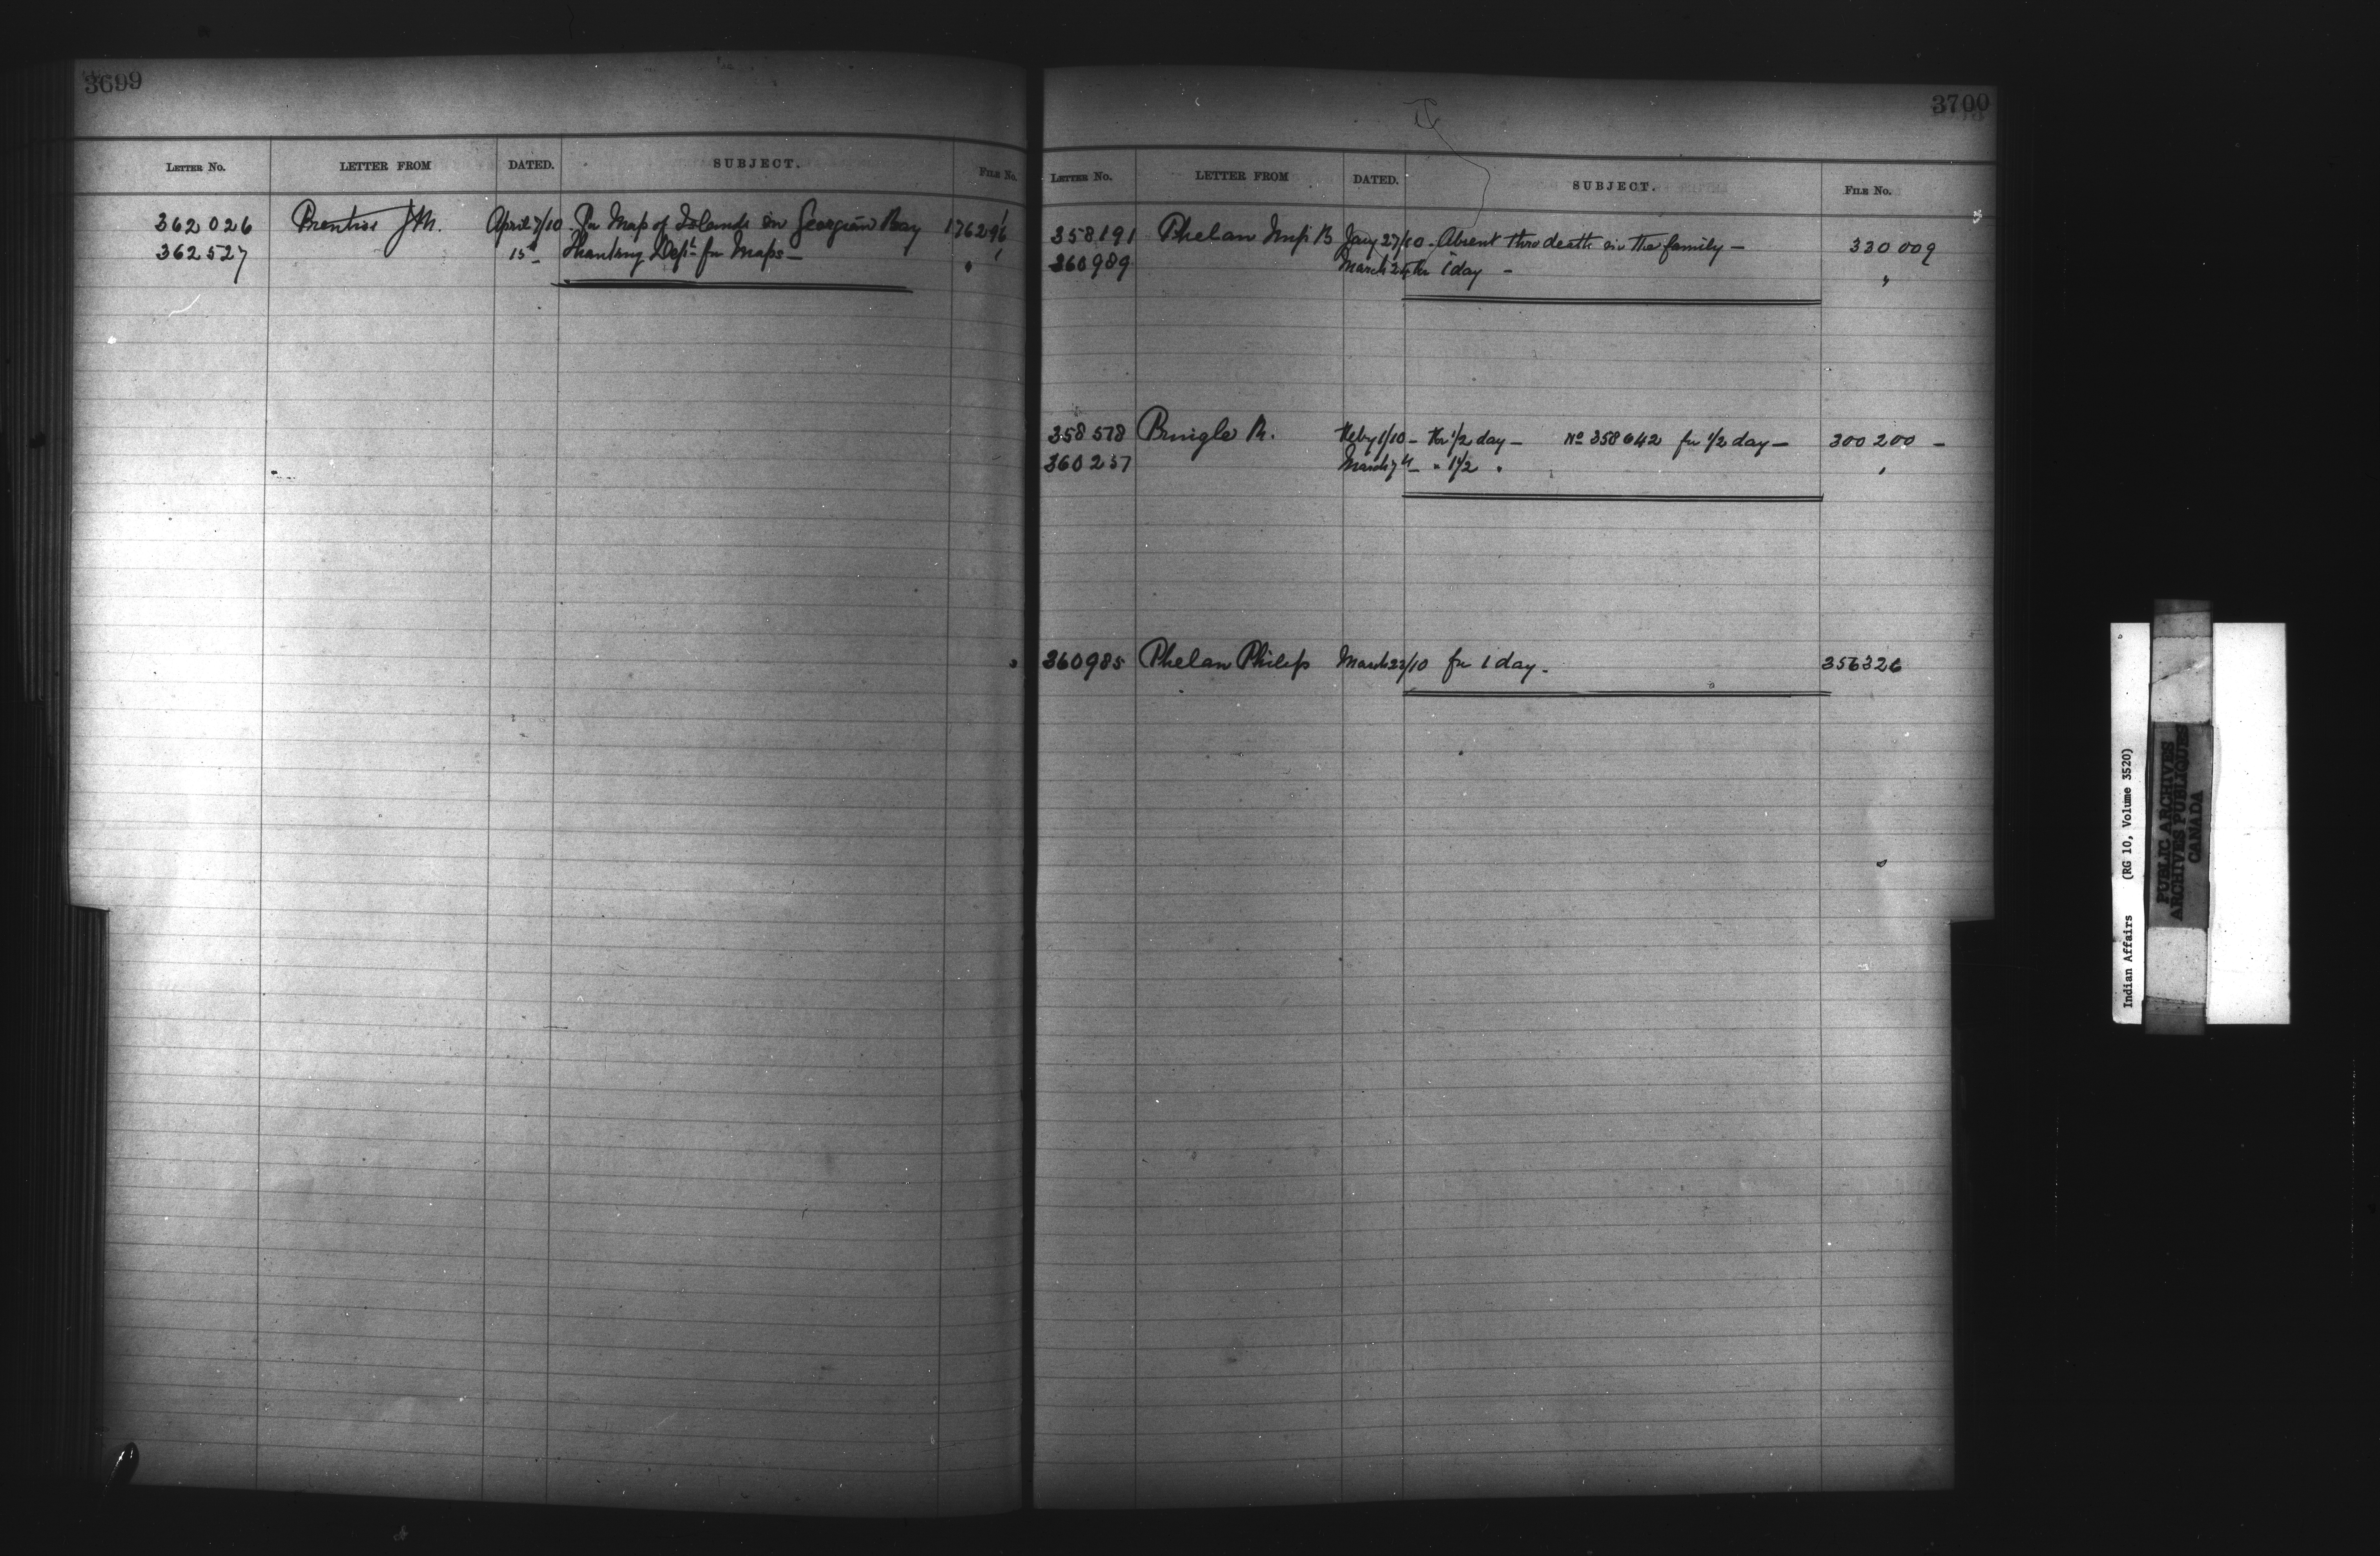 3699
LETTER No. LETTER FROM DATED. SUBJECT. FILE No.
362026 Prentice J M. April 7/10 For Map of Islands in Georgian Bay 176296
362527 15th Thanking Dept for Maps — "
3700
LETTER No. LETTER FROM DATED. SUBJECT. FILE No.
358191 Phelan B Jany 27/10 - Absent thro death in the family — 330009
360989 March for 1 day - "
358578 Pringle R. Feby 1/10 - for 1/2 day — No 358642 for 1/2 day — 300200 —
360237 March 7th — " 1 1/2 " "
360985 Phelan Philip March 22/10 for 1 day - 356326
Indian Affairs (RG 10, Volume 3520)
PUBLIC ARCHIVES
ARCHIVES PUBLIQUES
CANADA